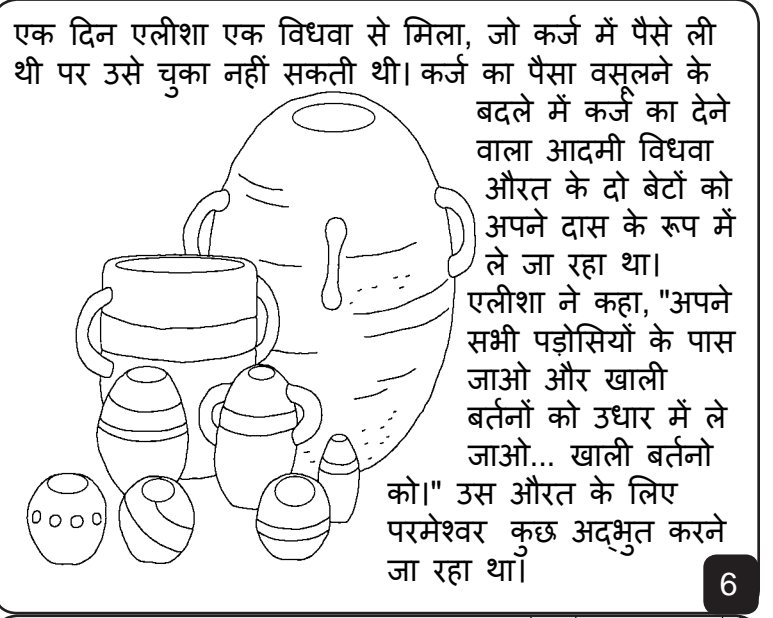 एक दिन एलीशा एक विधवा से मिला, जो कर्ज में पैसे ली
थी पर उसे चुका नहीं सकती थी। कर्ज का पैसा वसूलने के
बदले में कर्ज का देने
वाला आदमी विधवा
औरत के दो बेटों को
अपने दास के रूप में
ले जा रहा था।
एलीशा ने कहा, "अपने
सभी पड़ोसियों के पास
जाओ और खाली
बर्तनों को उधार में ले
जाओ... खाली बर्तनो
को।" उस औरत के लिए
परमेश्वर कुछ अद्भुत करने
जा रहा था।
6